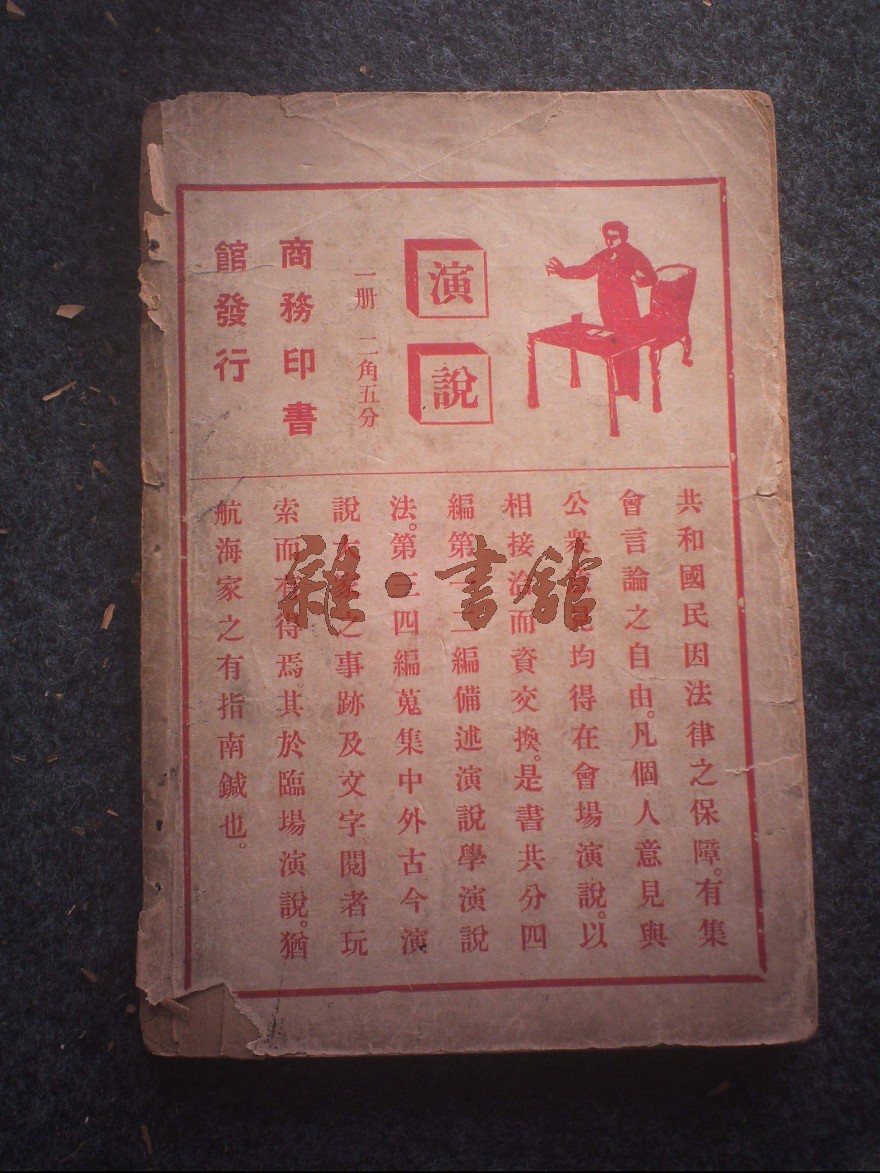 演說
一册 二角五分
商務印書
館發行
共和國民因法律之保障。有集
會言論之自由。凡個人意見與
公衆意見均得在會場演說。以
相接洽而資交換。是書共分四
編第一二編備述演說學演說
法。第三四編蒐集中外古今演
說大家之事跡及文字、閱者玩
索而有得焉其於臨場演說。猶
航海家之有指南鍼也。
雜·書館